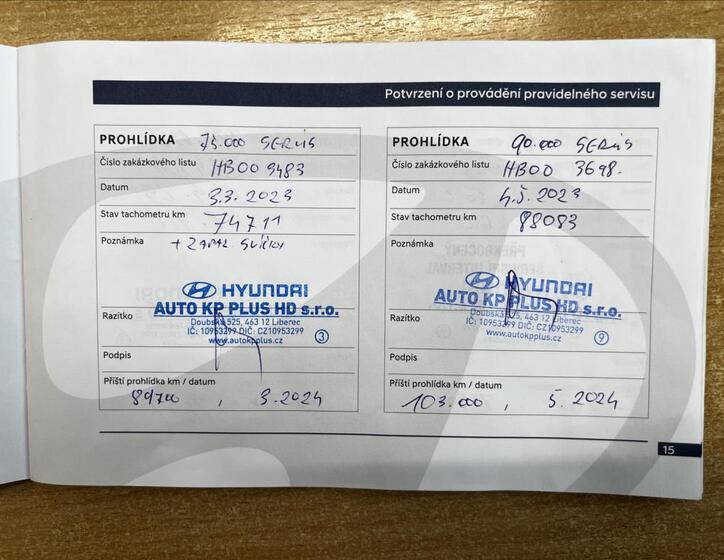 Potvrzení o provádění pravidelného servisu
PROHLÍDKA 75.000 SERVIS
Číslo zakázkového listu HB00 9483
Datum 3.3.2023
Stav tachometru km 74711
Poznámka + ZAPAL SVÍČKY
HYUNDAI
AUTO KP PLUS HD s.r.o.
Razítko Doubská 525, 463 12 Liberec
IČ: 10953299 DIČ: CZ10953299
www.autokpplus.cz 3
Podpis
Příští prohlídka km / datum
89700 , 3.2024
PROHLÍDKA 90.000 SERVIS
Číslo zakázkového listu HB00 3698.
Datum 4.5.2023
Stav tachometru km 88083
Poznámka
PŘEKROČENÝ
SERVISNÍ INTERVAL
HYUNDAI
AUTO KP PLUS HD s.r.o.
Razítko Doubská 525, 463 12 Liberec
IČ: 10953299 DIČ: CZ10953299
www.autokpplus.cz 9
Podpis
Příští prohlídka km / datum
103.000 , 5.2024
15